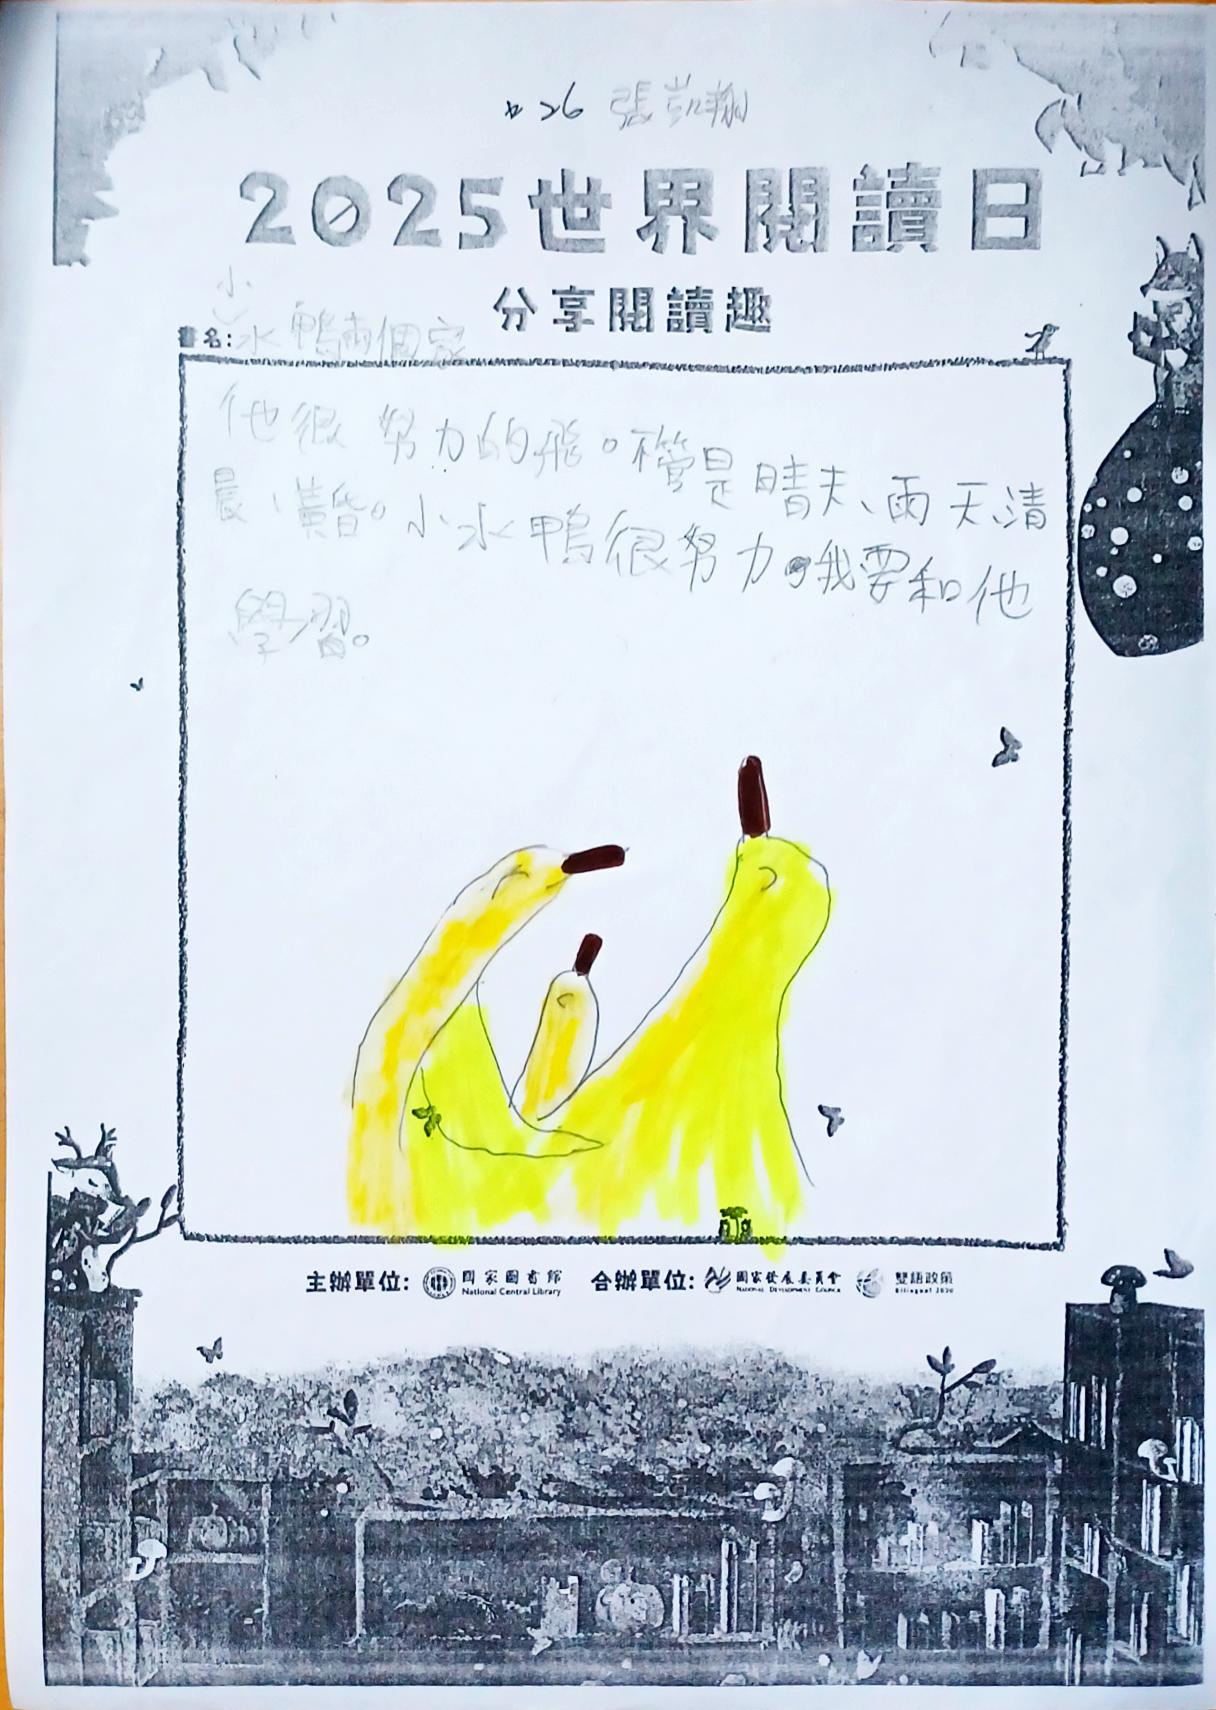 #26 張凱翔
2025世界閱讀日
分享閱讀趣
書名:小水鴨兩個家
他很努力的飛。不管是晴天、雨天、清
晨、黃昏。小水鴨很努力。我要和他
學習。
主辦單位: 國家圖書館 National Central Library 合辦單位: 國家發展委員會 National Development Council 雙語政策 Bilingual 2030